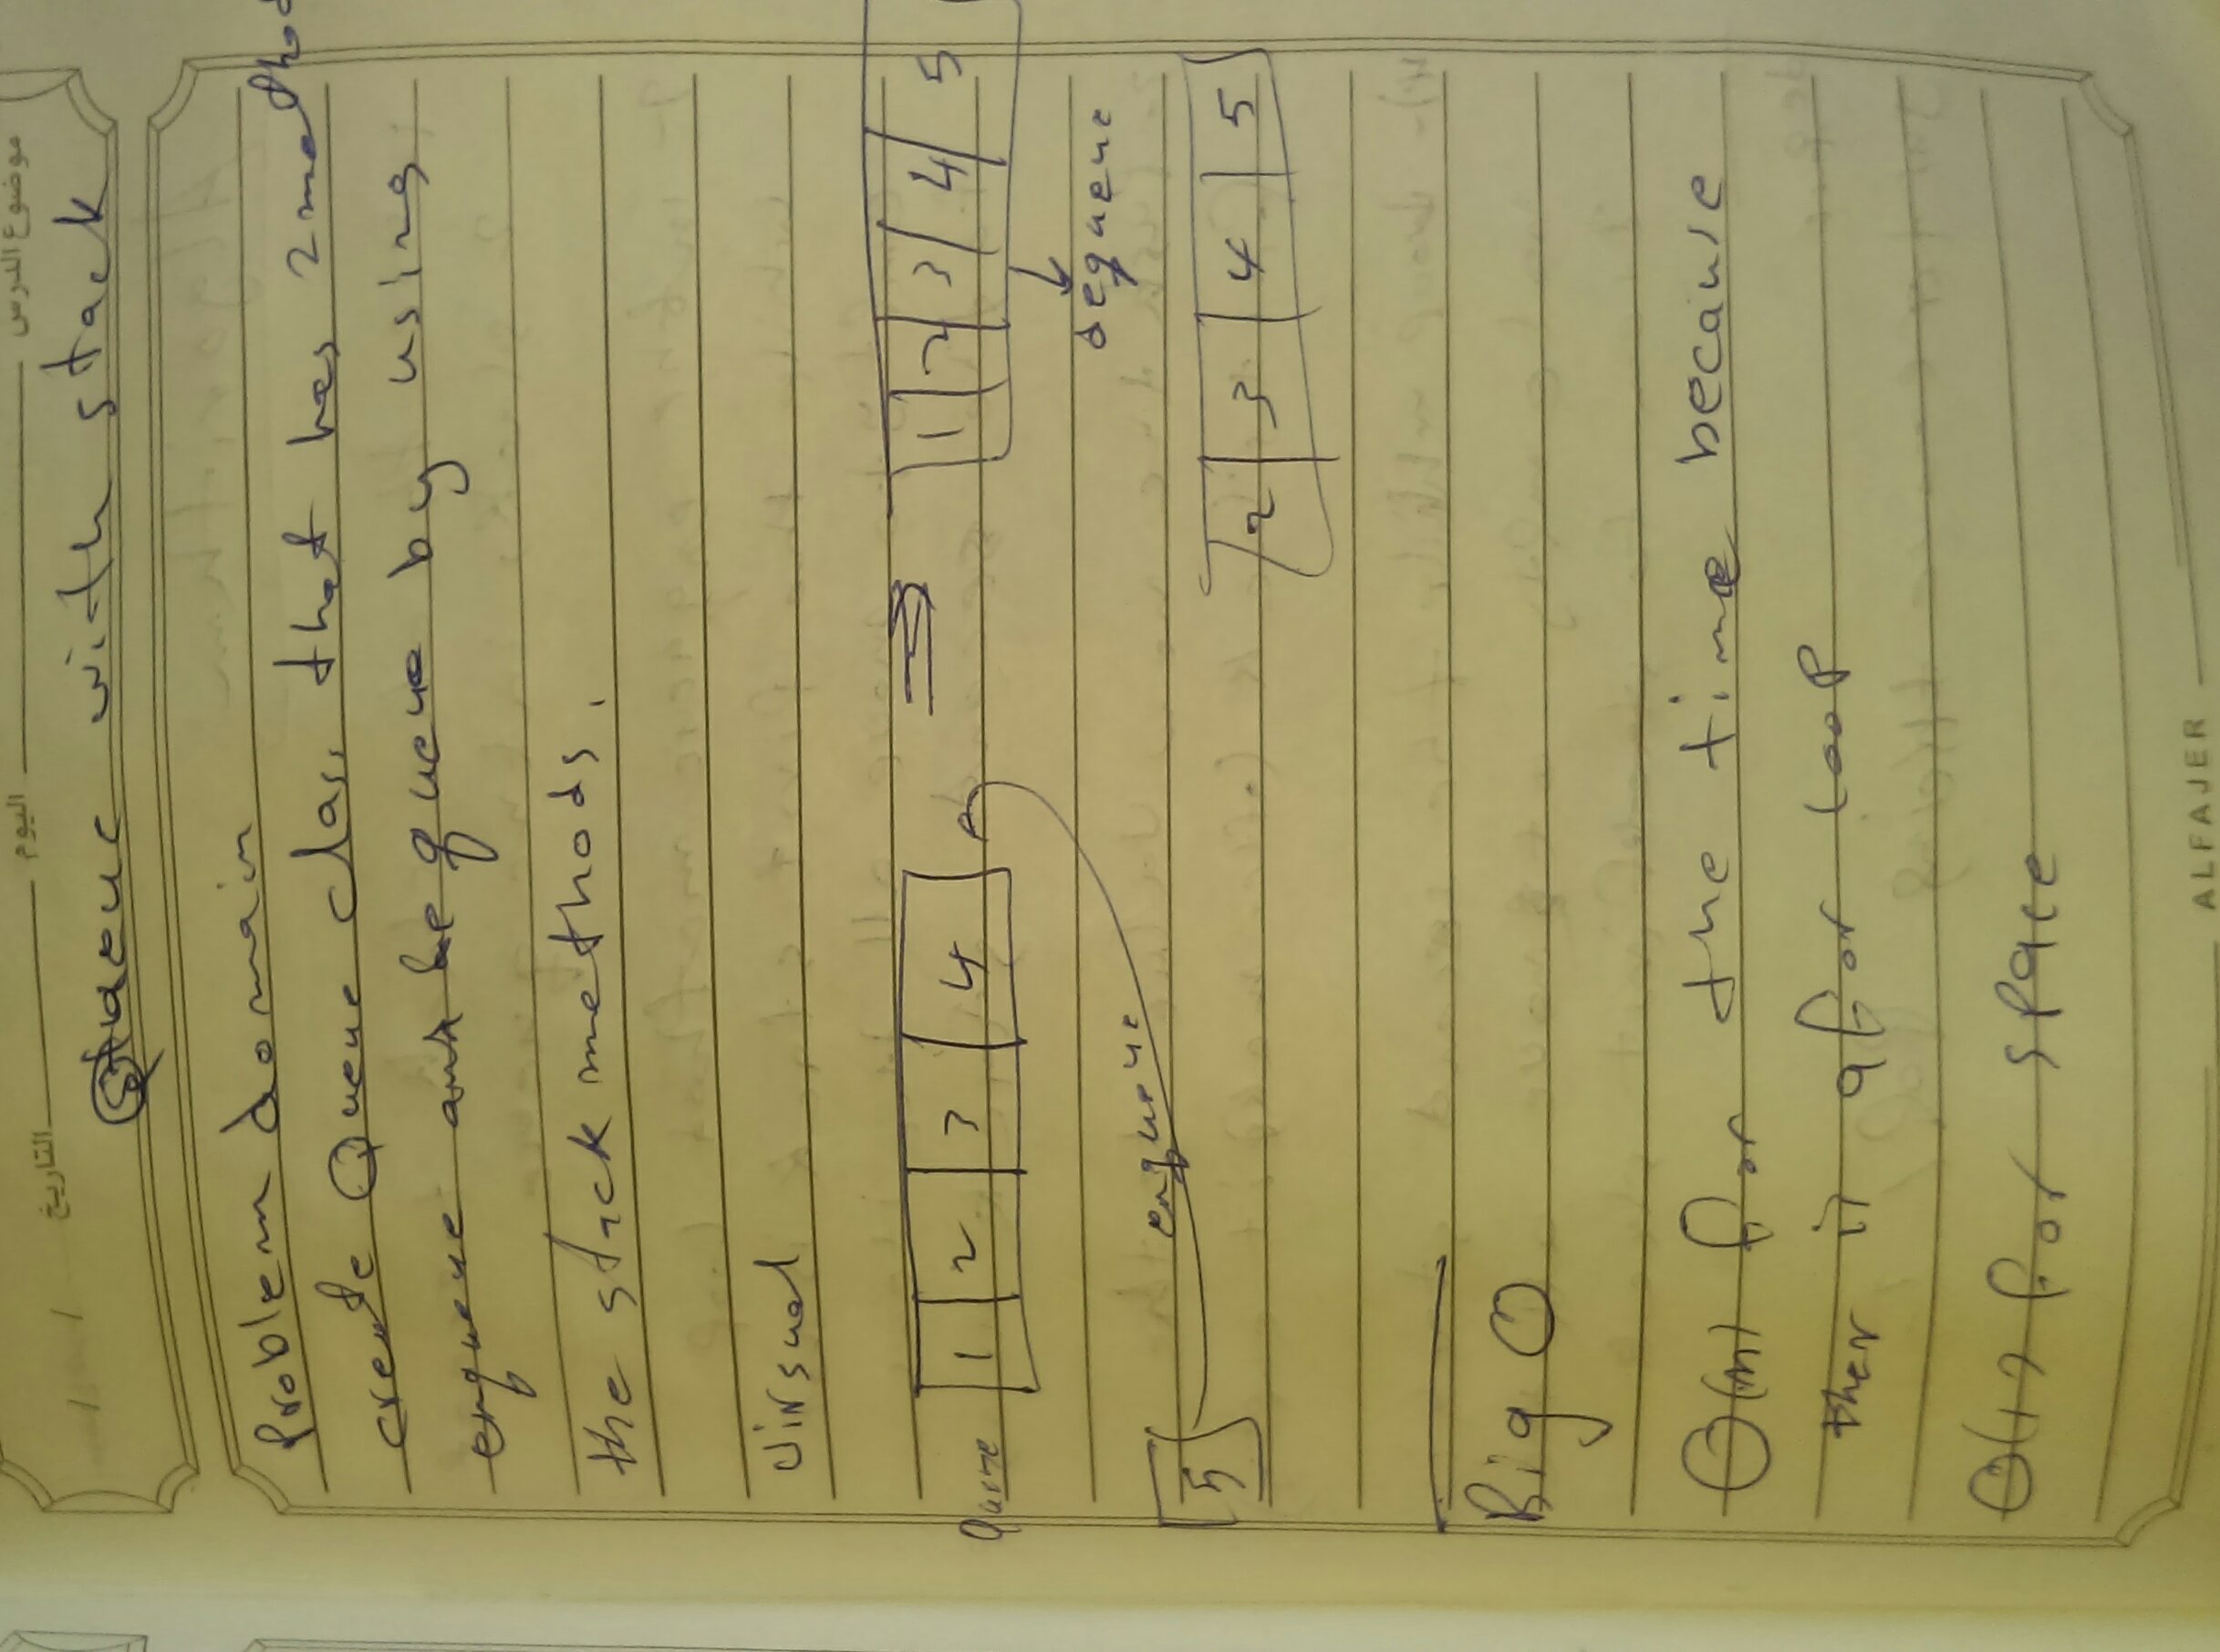 التاريخ اليوم موضوع الدرس
with stack
Problem domain
create Queue clas, that has 2 method
enqueue and dequeue by using
the stack methods.
Virsual
Queue 1 2 3 4 ⇒ 1 2 3 4 5
enqueue dequeue
5 2 3 4 5
Big O
O(n) for the time because
ther is a for loop
O(1) for space
ALFAJER